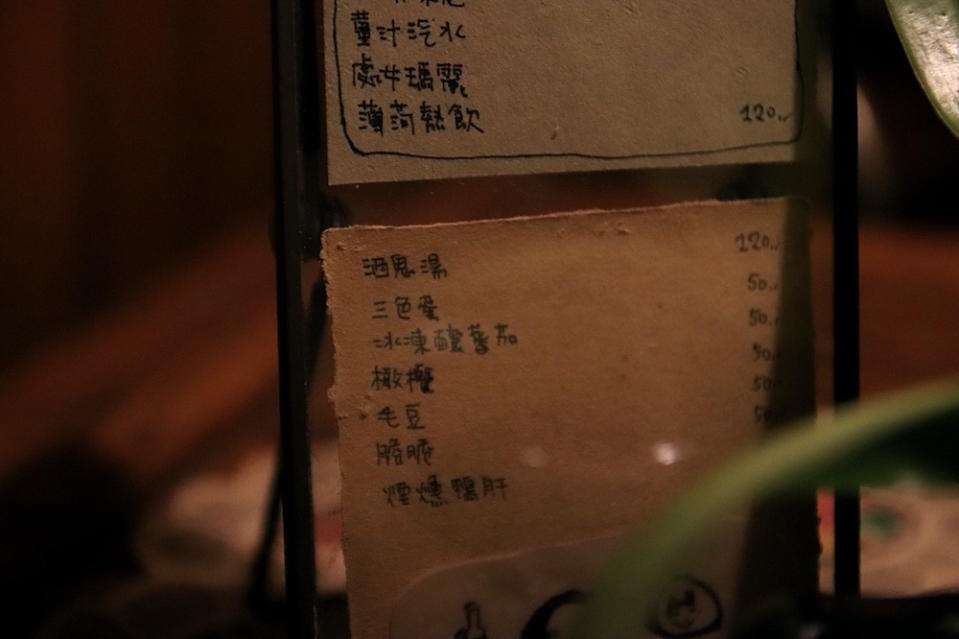 薑汁汽水
處女瑪麗
薄荷熱飲 120
酒鬼湯 120
三色蛋 50
冰凍釀蕃茄 50
橄欖
毛豆 50
脆脆
煙燻鴨肝